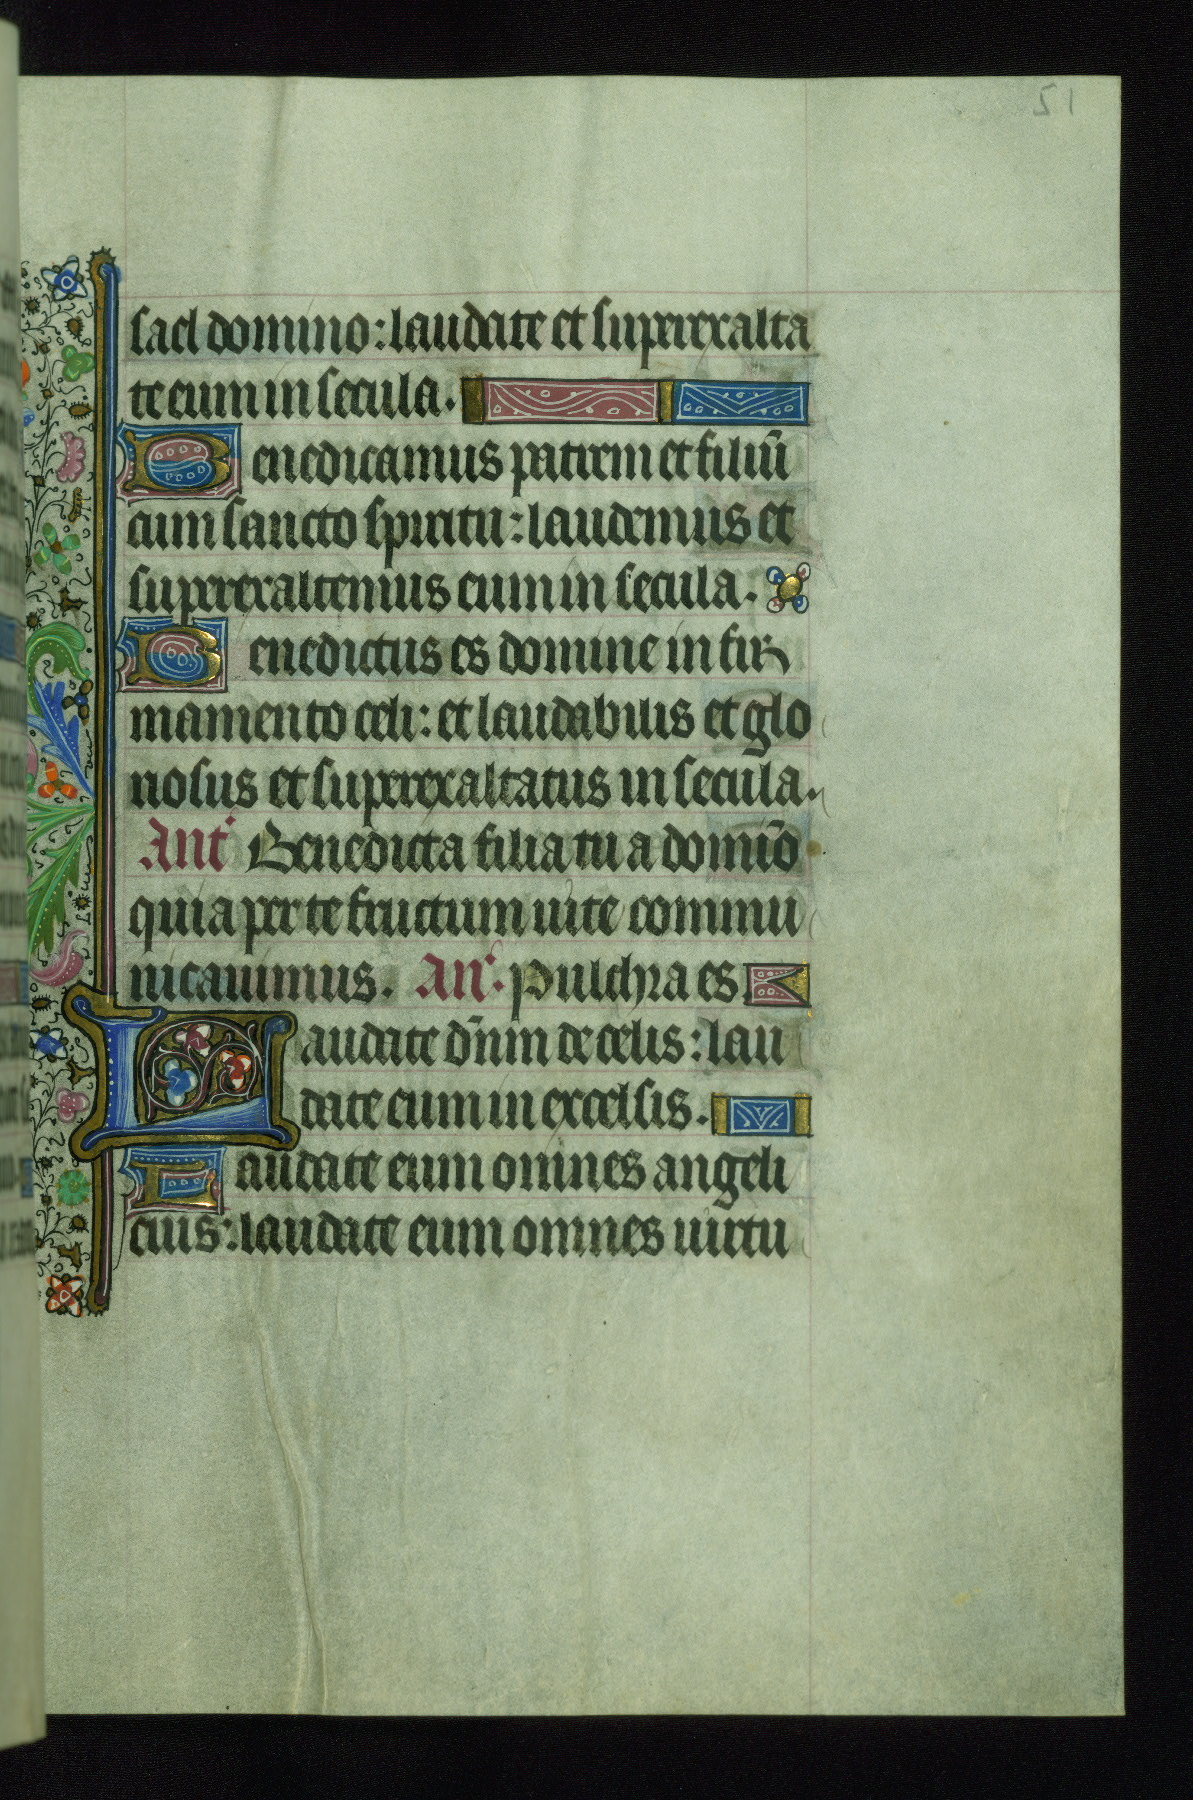 51
sael domino: laudate et superexalta
te eum in secula.
Benedicamus patrem et filiū
cum sancto spiritu: laudemus et
superexaltemus eum in secula.
Benedictus es domine in fir
mamento celi: et laudabilis et glo
riosus et superexaltatus in secula.
Ant' Benedicta filia tu a domīo
quia per te fructum uite commu
nicauimus. An'. Pulchra es
Laudate dn̄m de celis: lau
date eum in excelsis.
Laudate eum omnes angeli
eius: laudate eum omnes uirtu